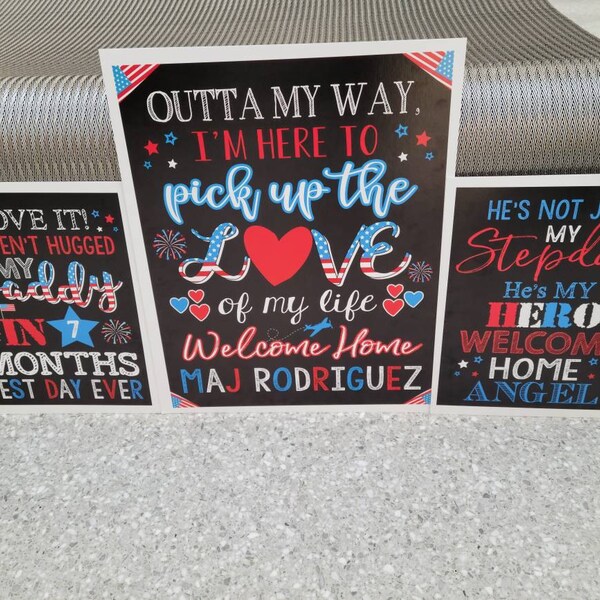 OVE IT!
EN'T HUGGED
MY
addy
IN 7
MONTHS
EST DAY EVER
OUTTA MY WAY,
I'M HERE TO
pick up the
LOVE
of my life
Welcome Home
MAJ RODRIGUEZ
HE'S NOT J
MY
Stepd
He's MY
HERO
WELCOM
HOME
ANGEL